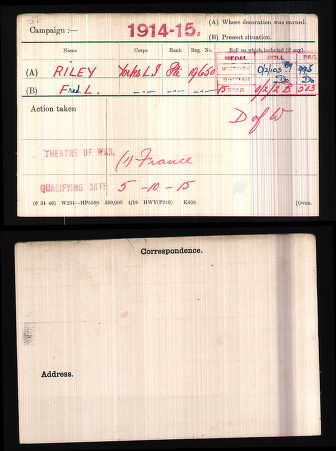 Campaign :— 1914-15. (A) Where decoration was earned.
(B) Present situation.
Name Corps Rank Reg. No. Roll on which included (if any)
MEDAL ROLL PAGE
(A) RILEY Yorks L I Pte VICTORY
(B) Fred L. BRITISH Do Do
15 STAR 0/2/2 B
Action taken
D of W
THEATRE OF WAR. (1) France
QUALIFYING DATE 5 -10 - 15
(6 34 46) W234—HP5590 500,000 4/19 HWV(P240) K608 [OVER.
Correspondence.
Address.